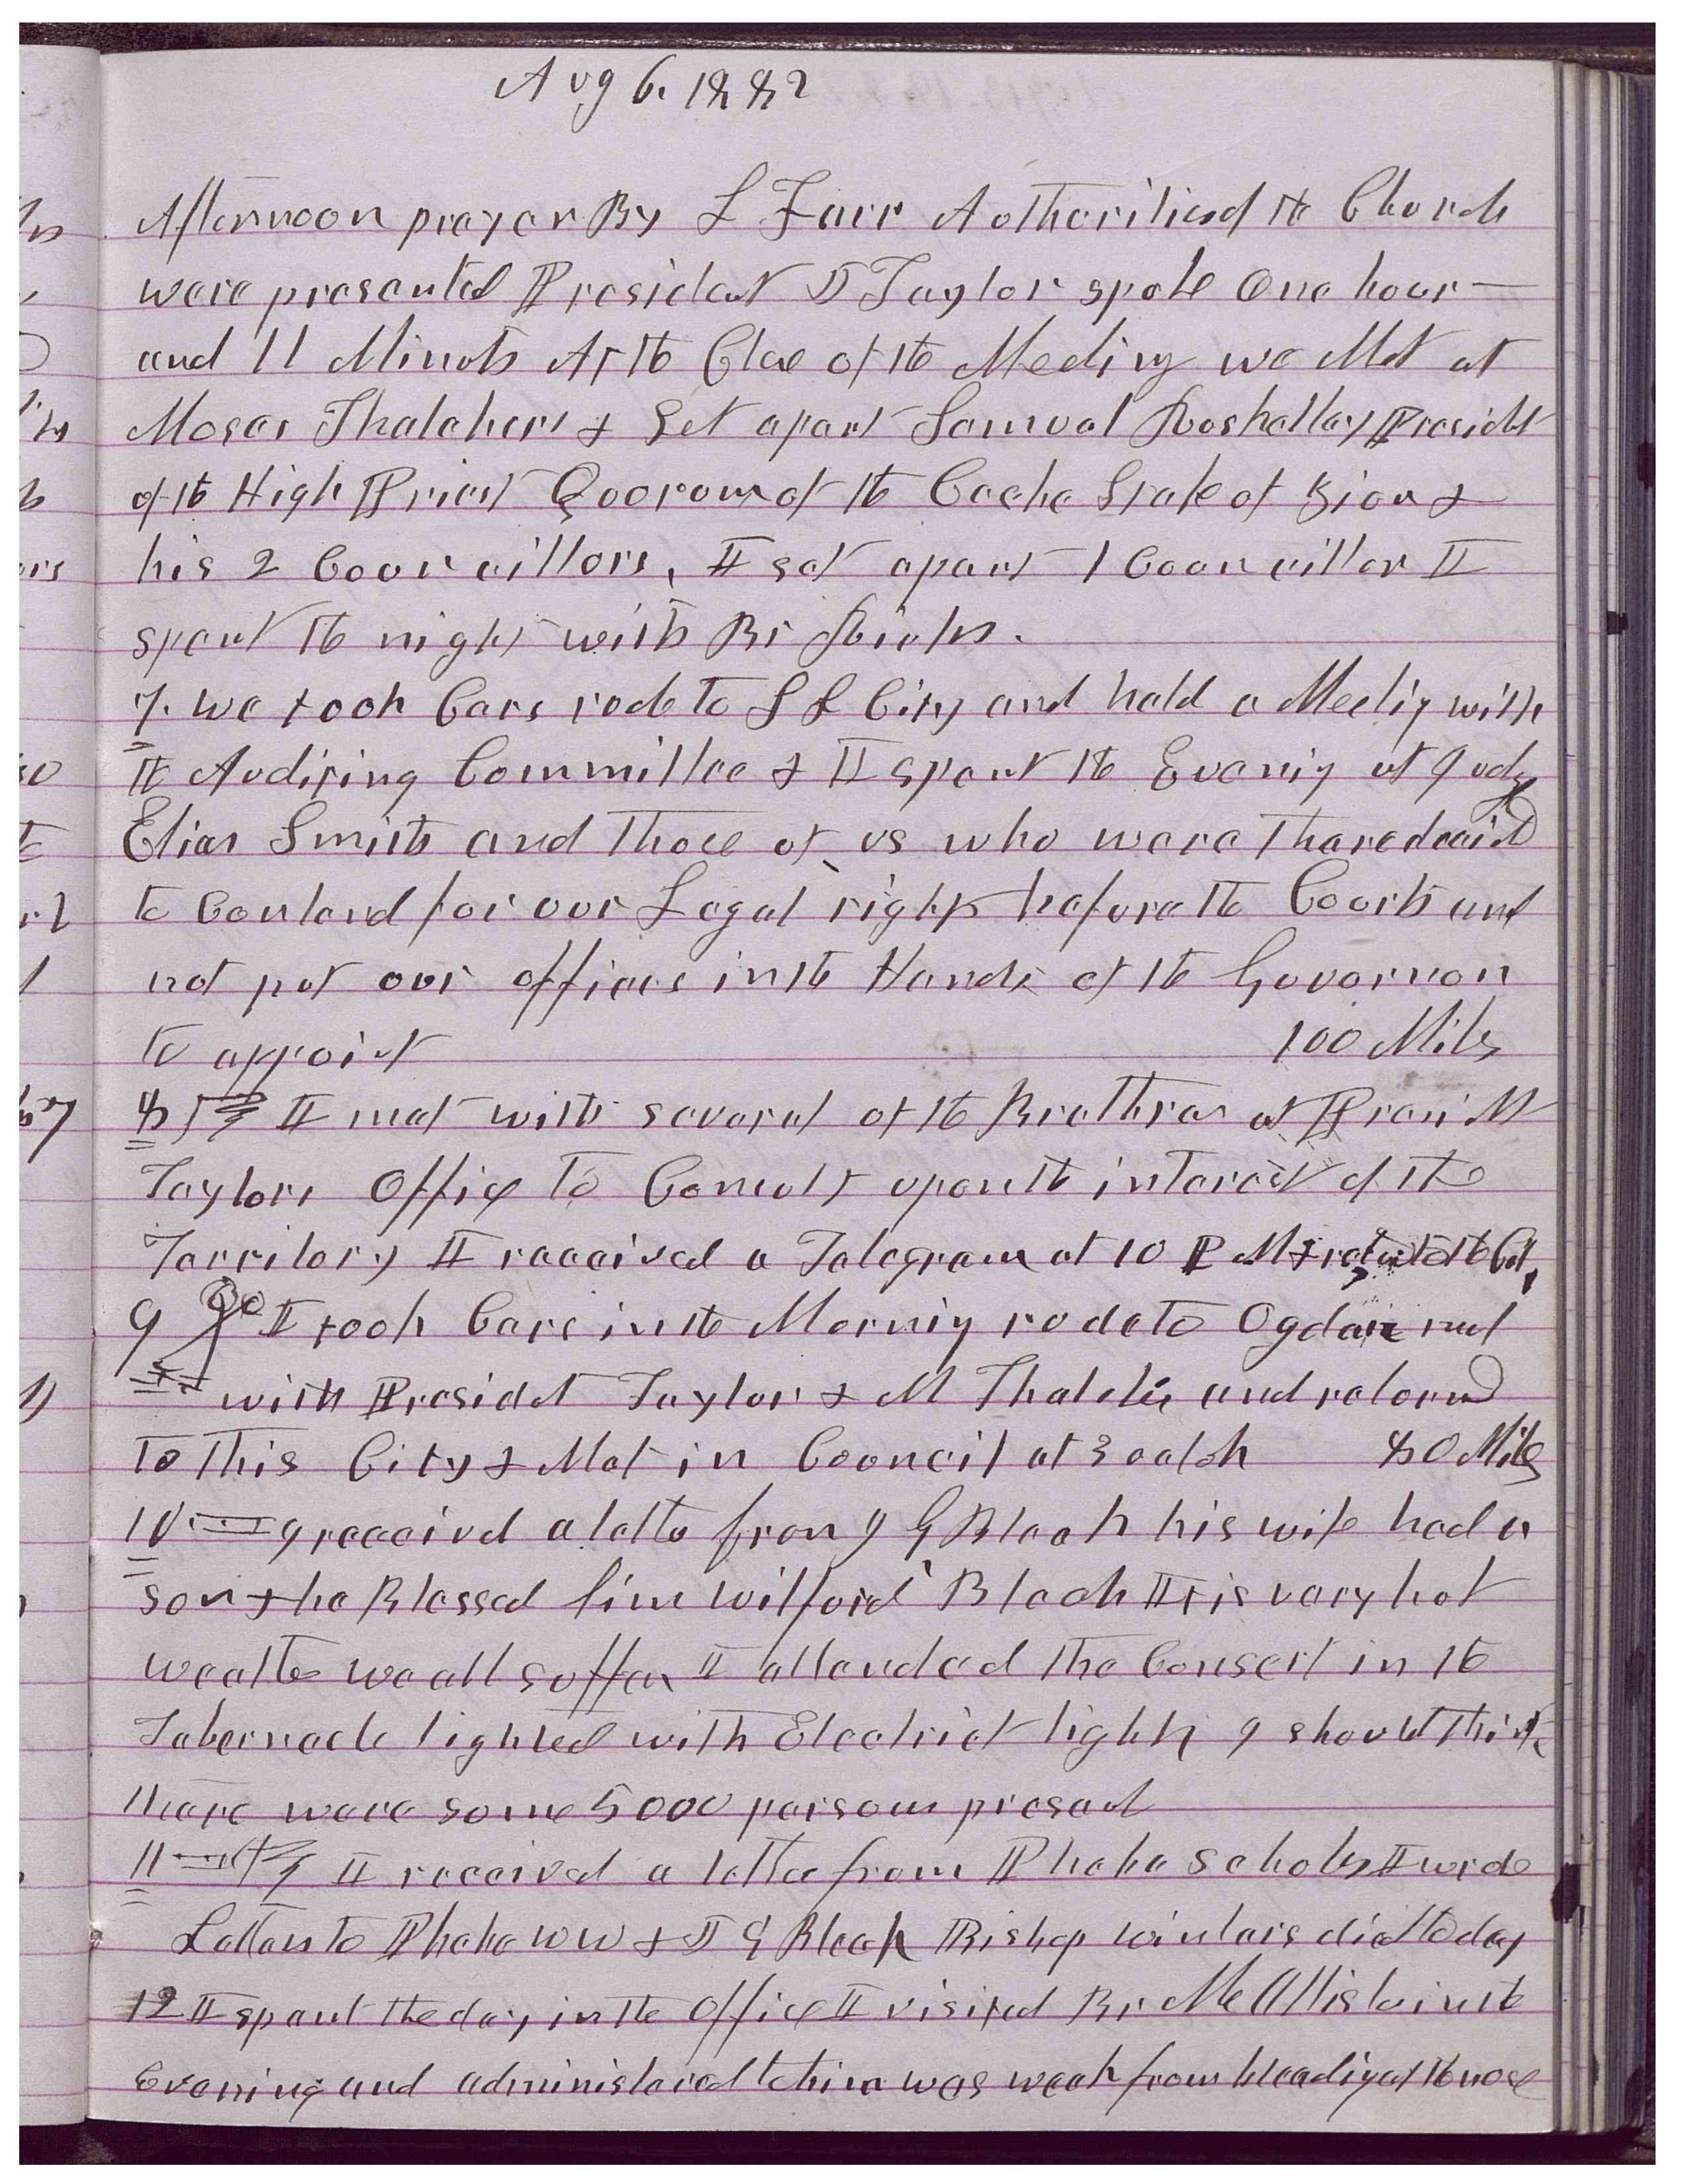 Aug 6. 1882
Afternoon prayer By L Farr Authorities of the Church
were presented President J Taylor spoke One hour
and 11 Minuts At the Close of the Meeting we Met at
Moses Thatchers & Set apart Samuel Roskelley Presidet
of the High Priest Quorum of the Cache Stake of Zion &
his 2 Councillors, I set apart 1 Councillor I
spent the night with Br Ricks.
7. we took Cars rode to S L City and held a Meetig with
the Auditing Committee & I spent the Evenig at Judge
Elias Smith and those of us who were there decid
to Contend for our Legal rights before the Courts and
not put our offices in the Hands of the Governor
to appoint 100 Miles
8 I met with several of the Brethren at Presidt
Taylors Office to Consult upon the interest of the
Territory I received a Telegram at 10 P M &
9 I took Cars in the Mornig rode to Ogden met
with Presidet Taylor & M Thatcher and returnd
to this City & Met in Council at 3 oclok 80 Miles
10 I received a letter from J G Bleak his wife had a
son & he Blessed him Wilford Bleak It is very hot
weather we all suffer I attended the Consert in the
Tabernacle lighted with Electrict lights I should think
there were some 5000 persons present
11 I received a letter from Phebe Scholes I wrote
Letters to Phebe W W & J G Bleak Bishop Winters died to day
12 I spent the day in the Office I visited Br McAllister in the
Evening and administered to him was weak from bleedig at the nose